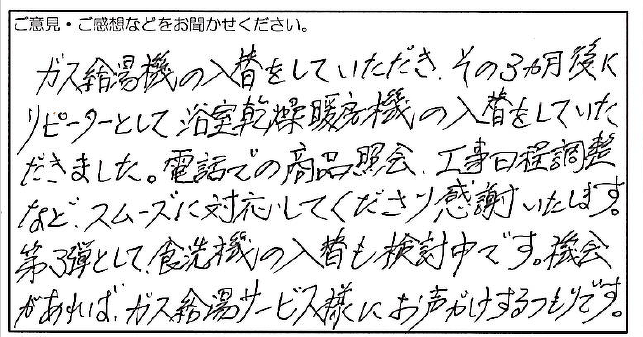 ご意見・ご感想などをお聞かせください。
ガス給湯機の入替をしていただき、その3ヵ月後に
リピーターとして浴室乾燥暖房機の入替をしていた
だきました。電話での商品照会、工事日程調整
など、スムーズに対応してくださり感謝いたします。
第3弾として、食洗機の入替も検討中です。機会
があれば、ガス給湯サービス様にお声がけするつもりです。